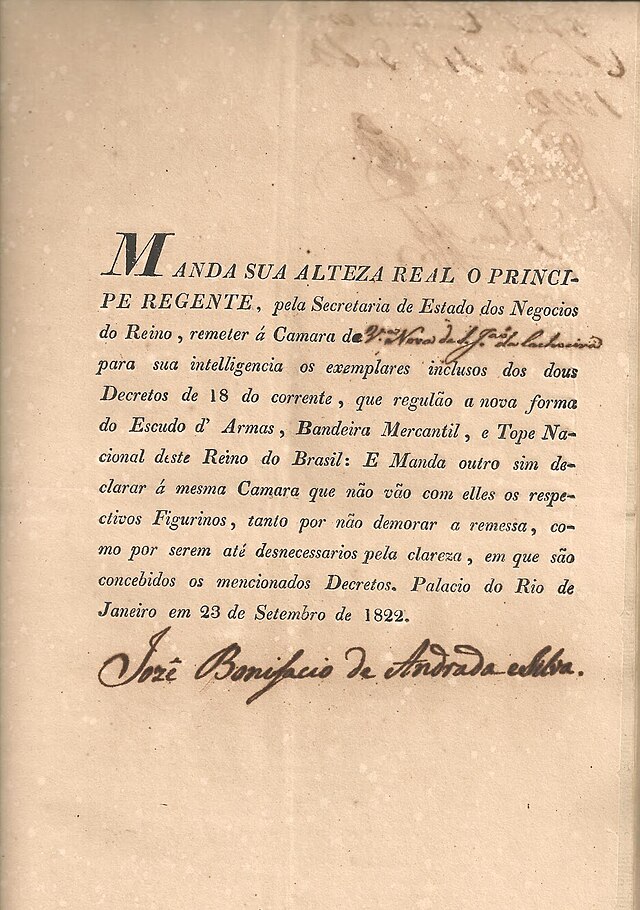 MANDA SUA ALTEZA REAL O PRINCI-
PE REGENTE, pela Secretaria de Estado dos Negocios
do Reino, remeter á Camara de V.ª Nova de S. João da Cachoeira
para sua intelligencia os exemplares inclusos dos dous
Decretos de 18 do corrente, que regulão a nova forma
do Escudo d' Armas, Bandeira Mercantil, e Tope Na-
cional deste Reino do Brasil: E Manda outro sim de-
clarar á mesma Camara que não vão com elles os respe-
ctivos Figurinos, tanto por não demorar a remessa, co-
mo por serem até desnecessarios pela clareza, em que são
concebidos os mencionados Decretos. Palacio do Rio de
Janeiro em 23 de Setembro de 1822.
Jozê Bonifacio de Andrada e Silva.